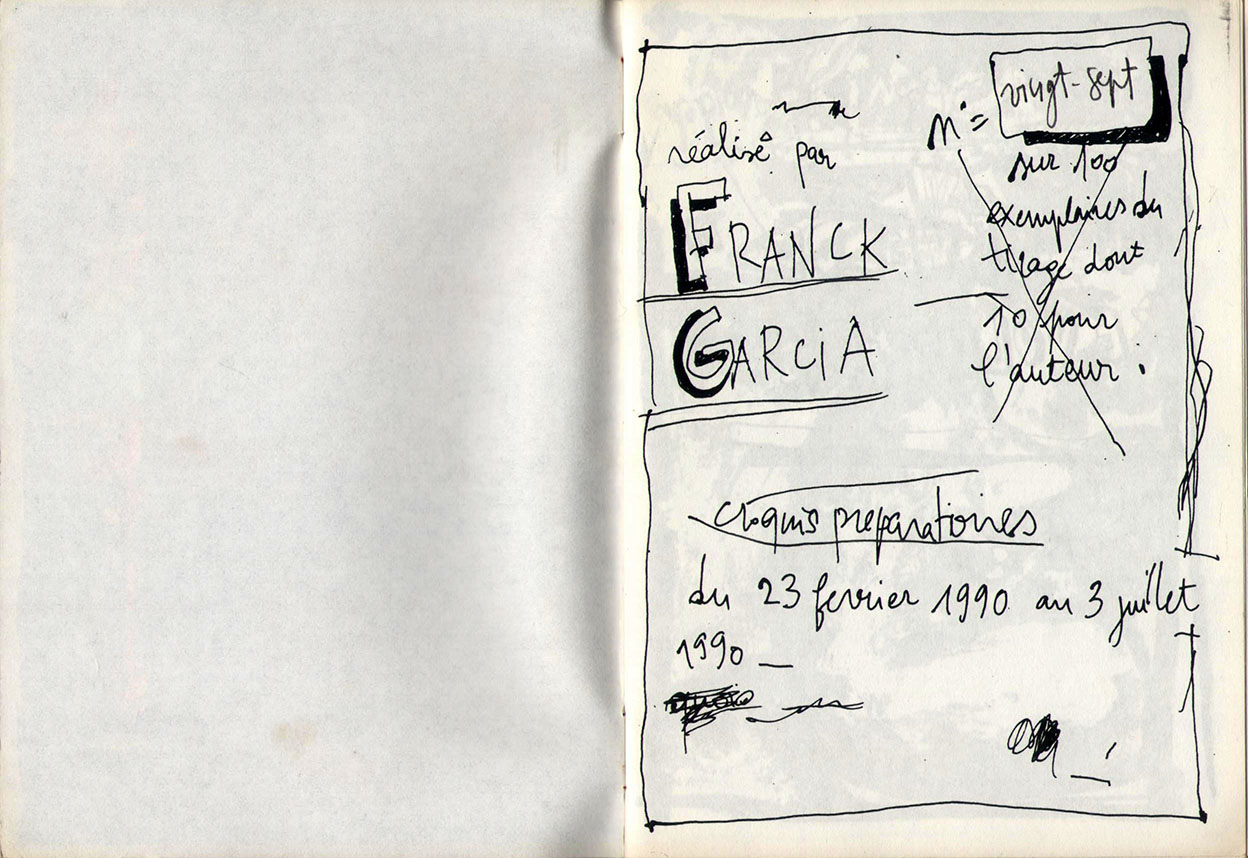 vingt-sept
n°=
sur 100
exemplaires du
tirage dont
10 pour
l'auteur.
réalisé par
FRANCK
GARCIA
croquis preparatoires
du 23 fevrier 1990 au 3 juillet
1990 _